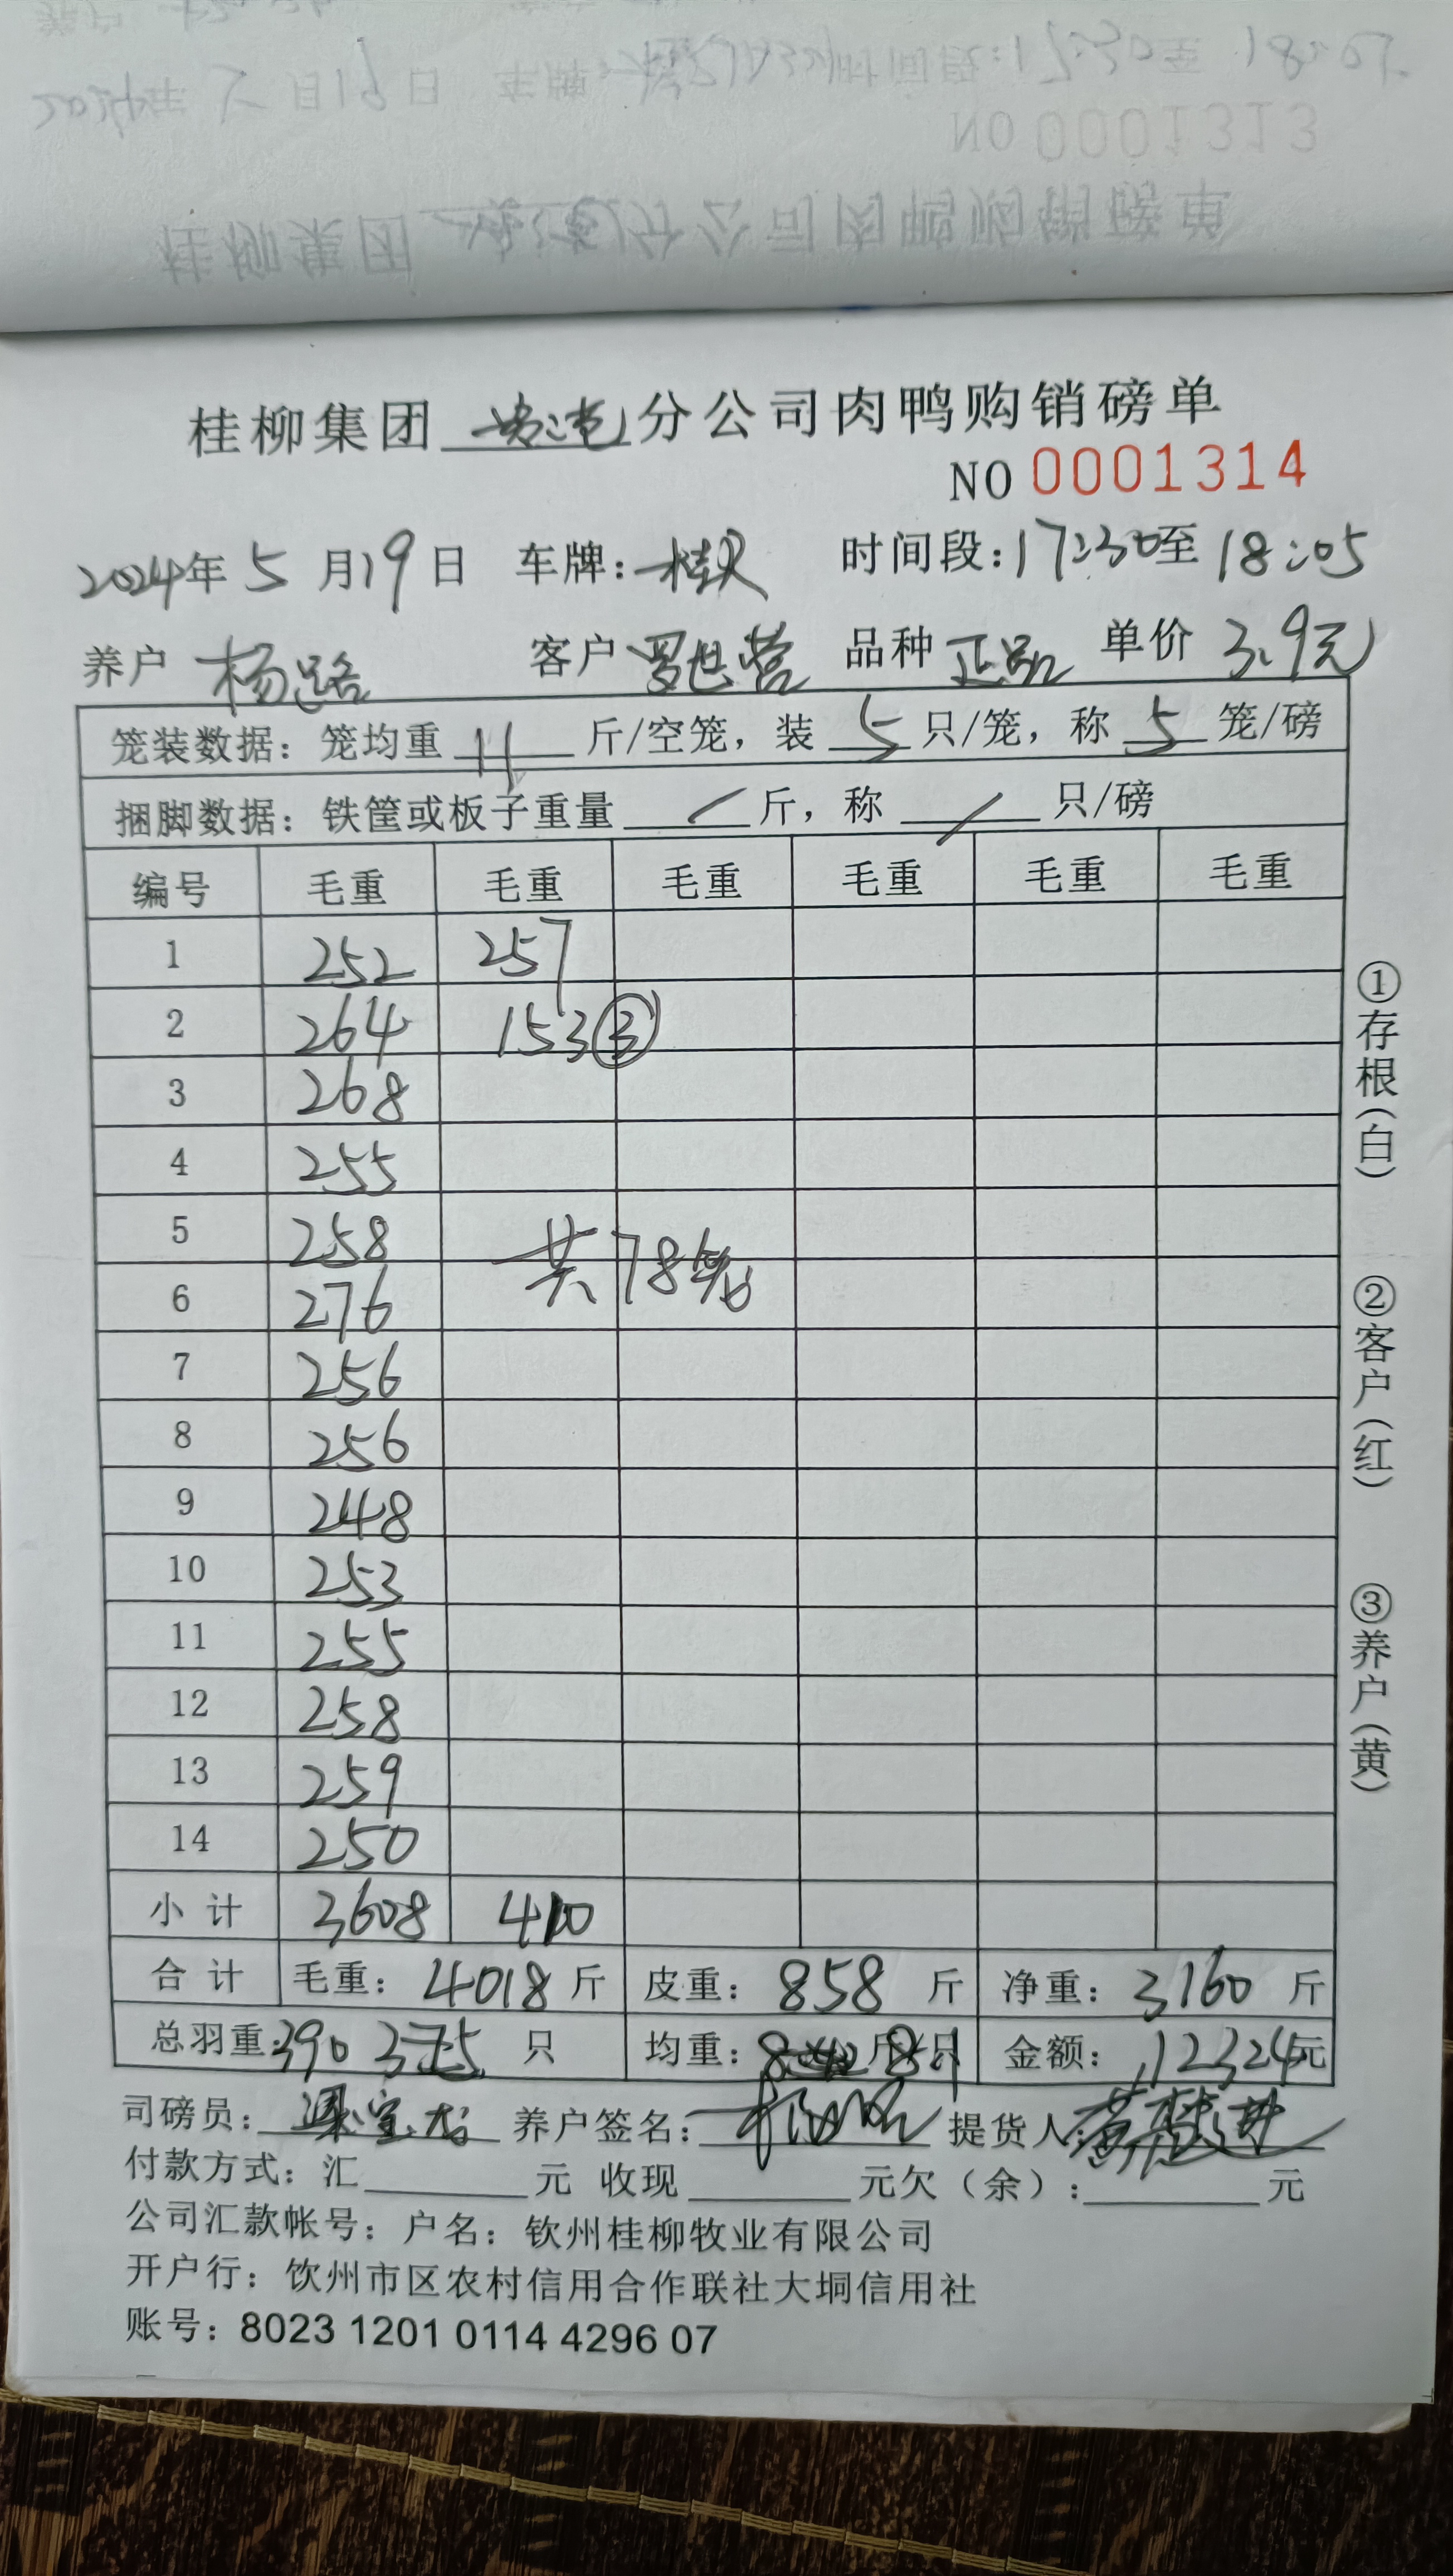 桂柳集团 贵港 分公司肉鸭购销磅单
NO 0001314
2024年 5 月19日 车牌: 时间段:17:30至 18:05
养户 杨路 客户 罗世营 品种 正品 单价 3.9元
笼装数据: 笼均重 11 斤/空笼, 装 5 只/笼, 称 5 笼/磅
捆脚数据: 铁筐或板子重量 / 斤, 称 / 只/磅
编号 毛重 毛重 毛重 毛重 毛重 毛重
1 252 257
2 264 153③
3 268
4 255
5 258
共78笼
6 276
7 256
8 256
9 248
10 253
11 255
12 258
13 259
14 250
小计 3608 410
合计 毛重: 4018 斤 皮重: 858 斤 净重: 3160 斤
总羽重: 390 只 均重: 8.1 斤/只 金额: 12324元
司磅员: 养户签名: 提货人:
付款方式: 汇 元 收现 元欠(余): 元
公司汇款帐号: 户名: 钦州桂柳牧业有限公司
开户行: 钦州市区农村信用合作联社大垌信用社
账号: 8023 1201 0114 4296 07
①存根(白)
②客户(红)
③养户(黄)